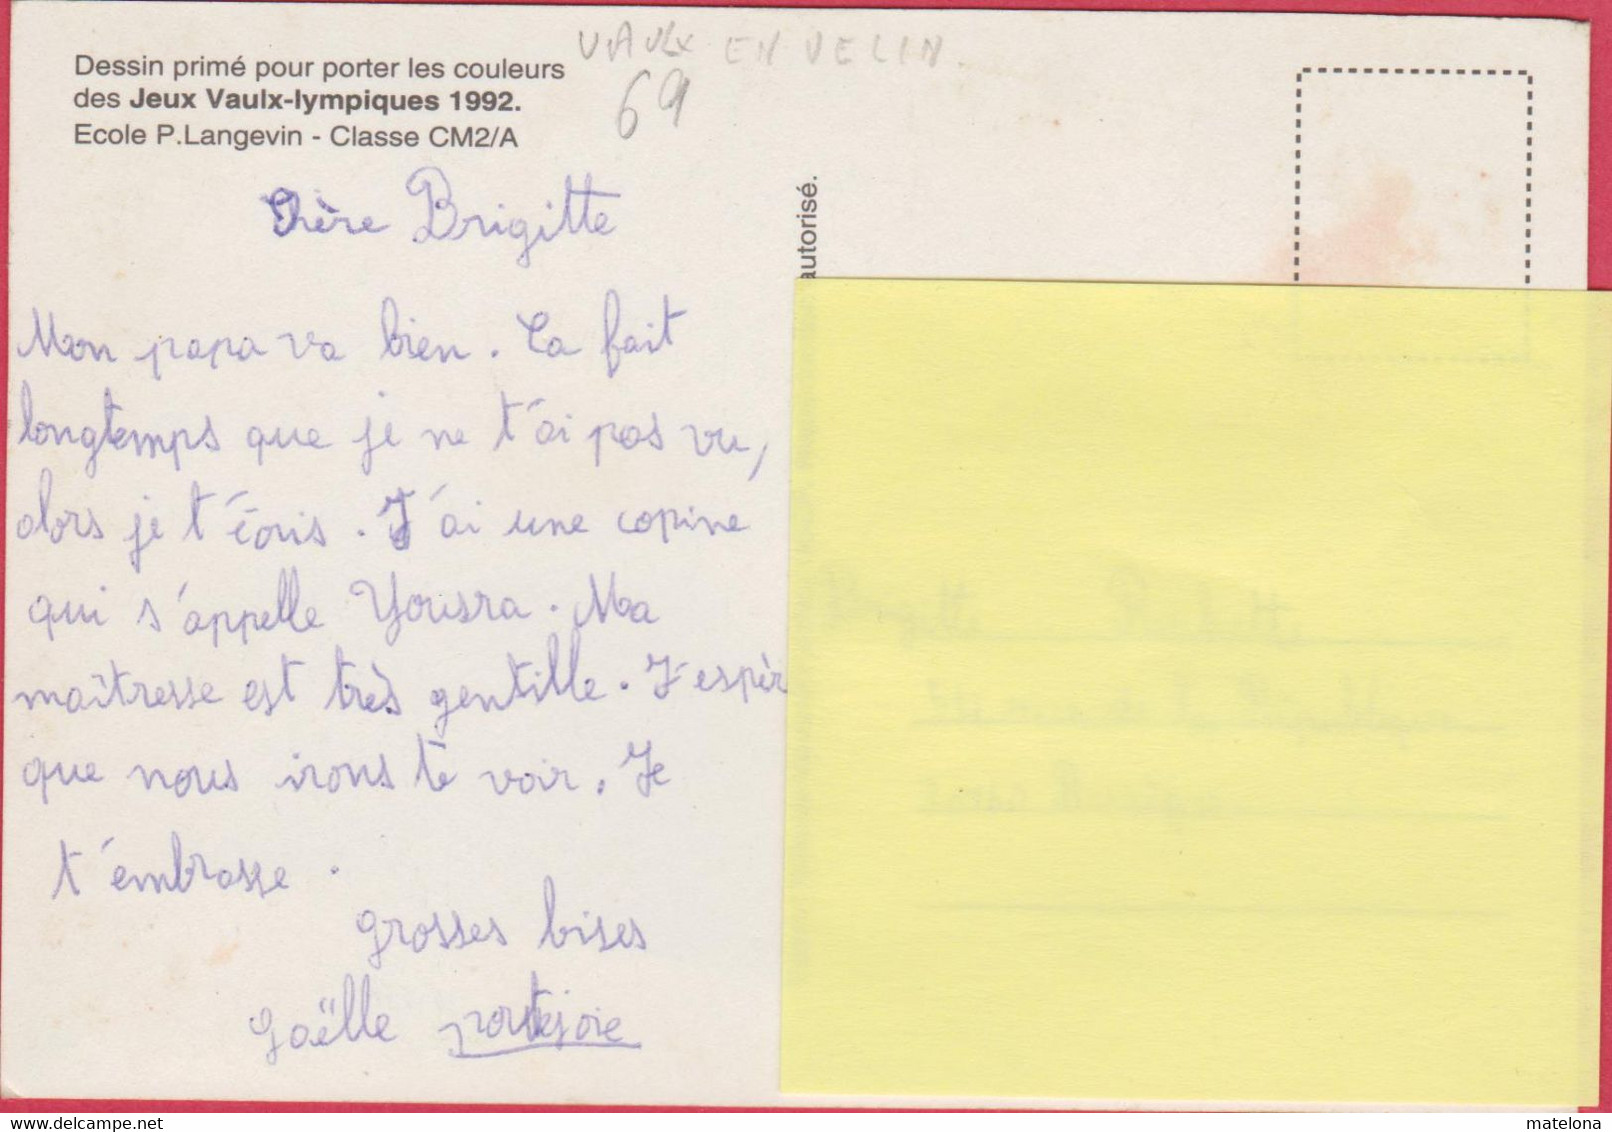 VAULX EN VELIN.
69
Dessin primé pour porter les couleurs
des Jeux Vaulx-lympiques 1992.
Ecole P.Langevin - Classe CM2/A
Chère Brigitte
Mon papa va bien. Ca fait
longtemps que je ne t'ai pas vu,
alors je t'écris. J'ai une copine
qui s'appelle Yousra. Ma
maîtresse est très gentille. J'espèr
que nous irons te voir. Je
t'embrasse.
grosses bises
Gaëlle portejoie
autorisé.
matelona